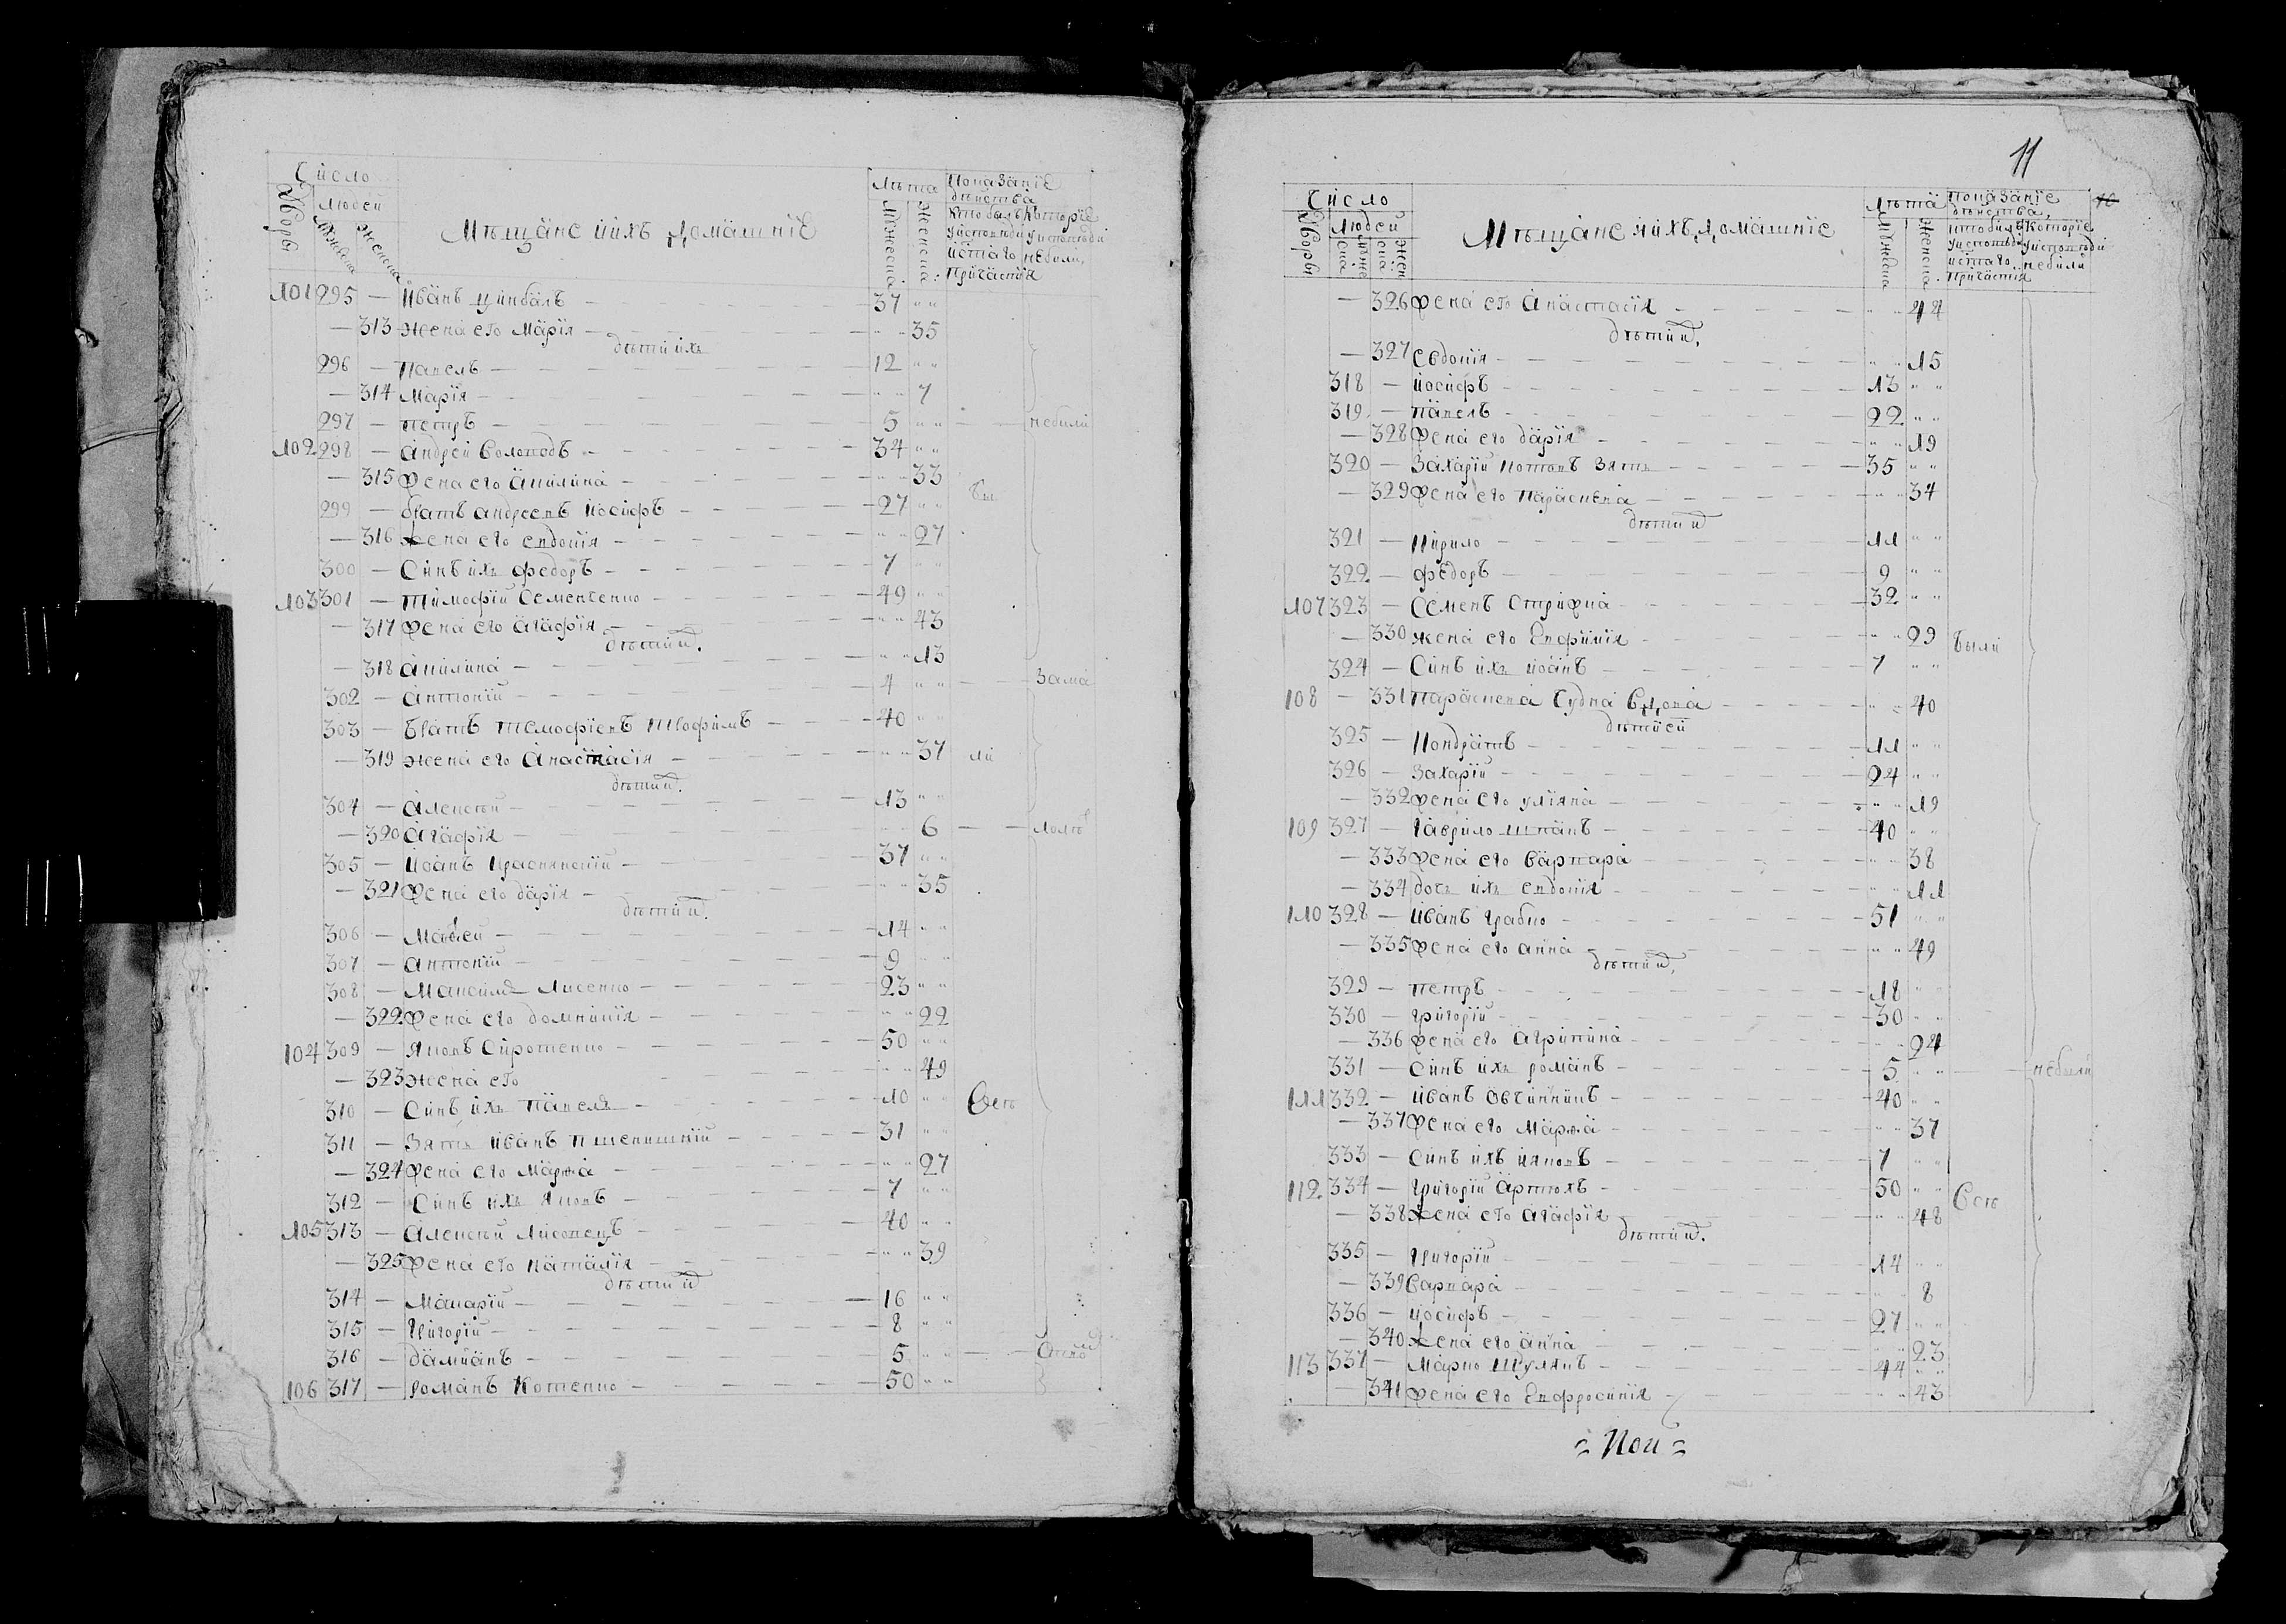 Число
Дворы
Людей
Мужеска
Женска
Мѣщане и ихъ домашнїе
Лѣта
Мужеска
Женска
Показанїе дѣйства
кто былъ у исповѣди и с:таго причастїя
которїе у исповѣди небыли
101 295 — Иванъ Цимбалъ — 37 „ „
— 313 жена его Марїя — „ „ 35
дѣти ихъ
296 — Павелъ — 12 „ „
— 314 Марїя — „ „ 7
297 — петръ — 5 „ „ — небили
102 298 — Андрей — 34 „ „
— 315 жена его Акилина — „ „ 33
бы
299 — братъ андреевъ Иосифъ — 27 „ „
— 316 жена его евдокїя — „ „ 27
300 — Синъ ихъ федоръ — 7 „ „
103 301 — Тимофїй Семенченко — 49 „ „
— 317 жена его Агафїя — „ „ 43
дѣти и͠х
— 318 Акилина — „ „ 13
302 — Антонїй — 4 „ „ — за ма
303 — братъ Темофїевъ Трофимъ — 40 „ „
— 319 жена его Анастасїя — „ „ 37 ли
дѣти и͠х
304 — Алексѣй — 13 „ „
— 320 Агафїя — „ „ 6 — лолѣ
305 — Иоанъ Краснянскїй — 37 „ „
— 321 жена его дарїя — „ „ 35
дѣти и͠х
306 — Матвей — 14 „ „
307 — антонїй — 9 „ „
308 — Лисенко — 23 „ „
— 322 жена его домникїя — „ „ 22
104 309 — Яковъ Сиротенко — 50 „ „
— 323 жена его — „ „ 49
310 — Синъ ихъ — 10 „ „ Всѣ
311 — Зять иванъ пшенишнїй — 31 „ „
— 324 жена его Марѳа — „ „ 27
312 — Синъ ихъ Яковъ — 7 „ „
105 313 — Алексѣй Лисовецъ — 40 „ „
— 325 жена его Наталїя — „ „ 39
дѣти и͠х
314 — Макарїй — 16 „ „
315 — Григорїй — 8 „ „
316 — дамианъ — 5 „ „
106 317 — романъ Котенко — 50 „ „
11
10
Число
Дворы
Людей
Муже ска
Жен ска
Мѣщане и ихъ домашнїе
Лѣта
Мужска
Женска
Показанїе дѣйства
кто билъ у исповѣди и с:таго причастїя
которїе у исповѣди небили
— 326 жена его Анастасїя — „ „ 44
дѣти и͠х
— 327 Евдокїя — „ „ 15
318 — Иосифъ — 13 „ „
319 — павелъ — 22 „ „
— 328 жена его дарїя — „ „ 19
320 — Захарїй Котовъ Зять — 35 „ „
— 329 жена его параскева — „ „ 34
дѣти и͠х
321 — Кирило — 11 „ „
322 — федоръ — 9 „ „
107 323 — Семенъ Стрижка — 32 „ „
— 330 жена его Евфимїя — „ „ 29 были
324 — Синъ ихъ иоанъ — 7 „ „
108 — 331 Параскева Вдова — „ „ 40
дѣти еи
325 — Кондратъ — 11 „ „
326 — Захарїй — 24 „ „
— 332 жена его улїяна — „ „ 19
109 327 — Гаврило шпакъ — 40 „ „
— 333 жена его Варвара — „ „ 38
— 334 дочъ ихъ евдокїя — „ „ 11
110 328 — Иванъ Грабко — 51 „ „
— 335 жена его анна — „ „ 49
дѣти и͠х
329 — петръ — 18 „ „
330 — григорїй — 30 „ „
— 336 жена его Агрипина — „ „ 24
331 — синъ ихъ романъ — 5 „ „ — небыли
111 332 — иванъ Овчинникъ — 40 „ „
— 337 жена его Марѳа — „ „ 37
333 — синъ ихъ ияковъ — 7 „ „
112 334 — Григорїй Артюхъ — 50 „ „ Всѣ
— 338 жена его Агафїя — „ „ 48
дѣти и͠х
335 — Григорїй — 14 „ „
— 339 Варвара — „ „ 8
336 — иосифъ — 27 „ „
— 340 жена его анна — „ „ 23
113 337 — Марко Шулякъ — 44 „ „
— 341 жена его Евфросинїя — „ „ 43